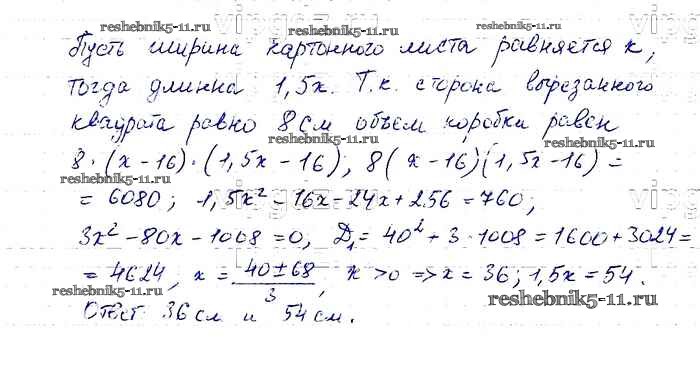 reshebnik5-11.ru
reshebnik5-11.ru
reshebnik5-11.ru
Пусть ширина картонного листа равняется x,
тогда длинна 1,5x. Т.к. сторона вырезанного
квадрата равно 8 см объем коробки равен
8·(x-16)·(1,5x-16), 8(x-16)(1,5x-16)=
reshebnik5-11.ru
reshebnik5-11.ru
=6080; 1,5x²-16x-24x+256=760;
3x²-80x-1008=0, D₁=40²+3·1008=1600+3024=
=4624, x=(40±68)/3, x>0=>x=36; 1,5x=54.
reshebnik5-11.ru
reshebnik5-11.ru
Ответ 36 см и 54 см.